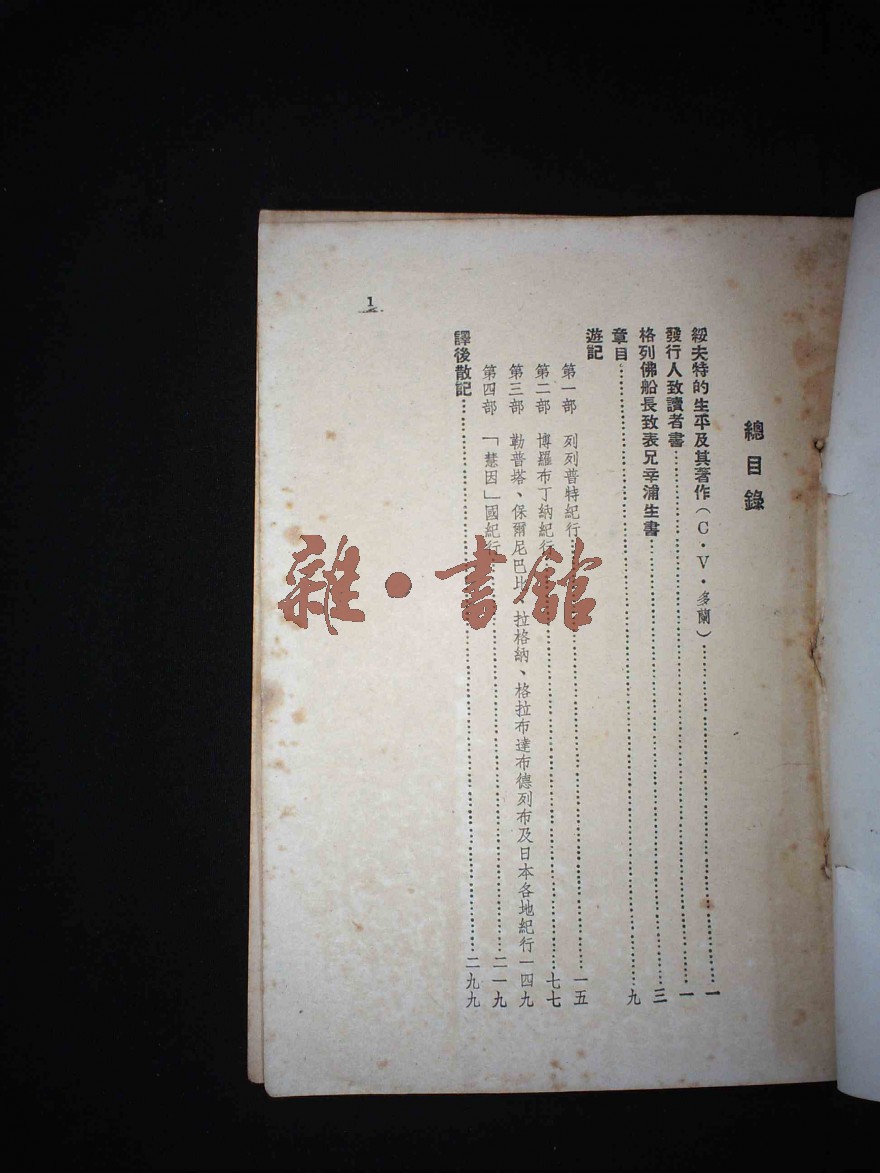 總目錄
綏夫特的生平及其著作(C·V·多蘭)……一
發行人致讀者書……一
格列佛船長致表兄辛浦生書……三
章目……九
遊記
第一部 列列普特紀行……一五
第二部 博羅布丁納紀行……七七
第三部 勒普塔、保爾尼巴比、拉格納、格拉布達布德列布及日本各地紀行一四九
第四部 「慧因」國紀行……二一九
譯後散記……二九九
1
雜·書館